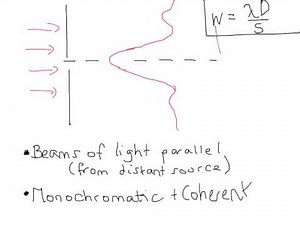 W = λD/S
• Beams of light parallel
(from distant source)
• Monochromatic + Coherent